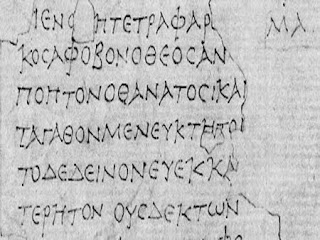 ΜΕΝΟϹ ΗΤΕΤΡΑΦΑΡ ΜΑ
ΚΟϹΑΦΟΒΟΝΟΘΕΟϹΑΝ
ΠΟΠΤΟΝΟΘΑΝΑΤΟϹΚΑΙ
ΤΑΓΑΘΟΝΜΕΝΕΥΚΤΗΤΟ
ΤΟΔΕΔΕΙΝΟΝΕΥΕΚΚΑ
ΤΕΡΗΤΟΝ ΟΥϹΔΕΚΤΩΝ